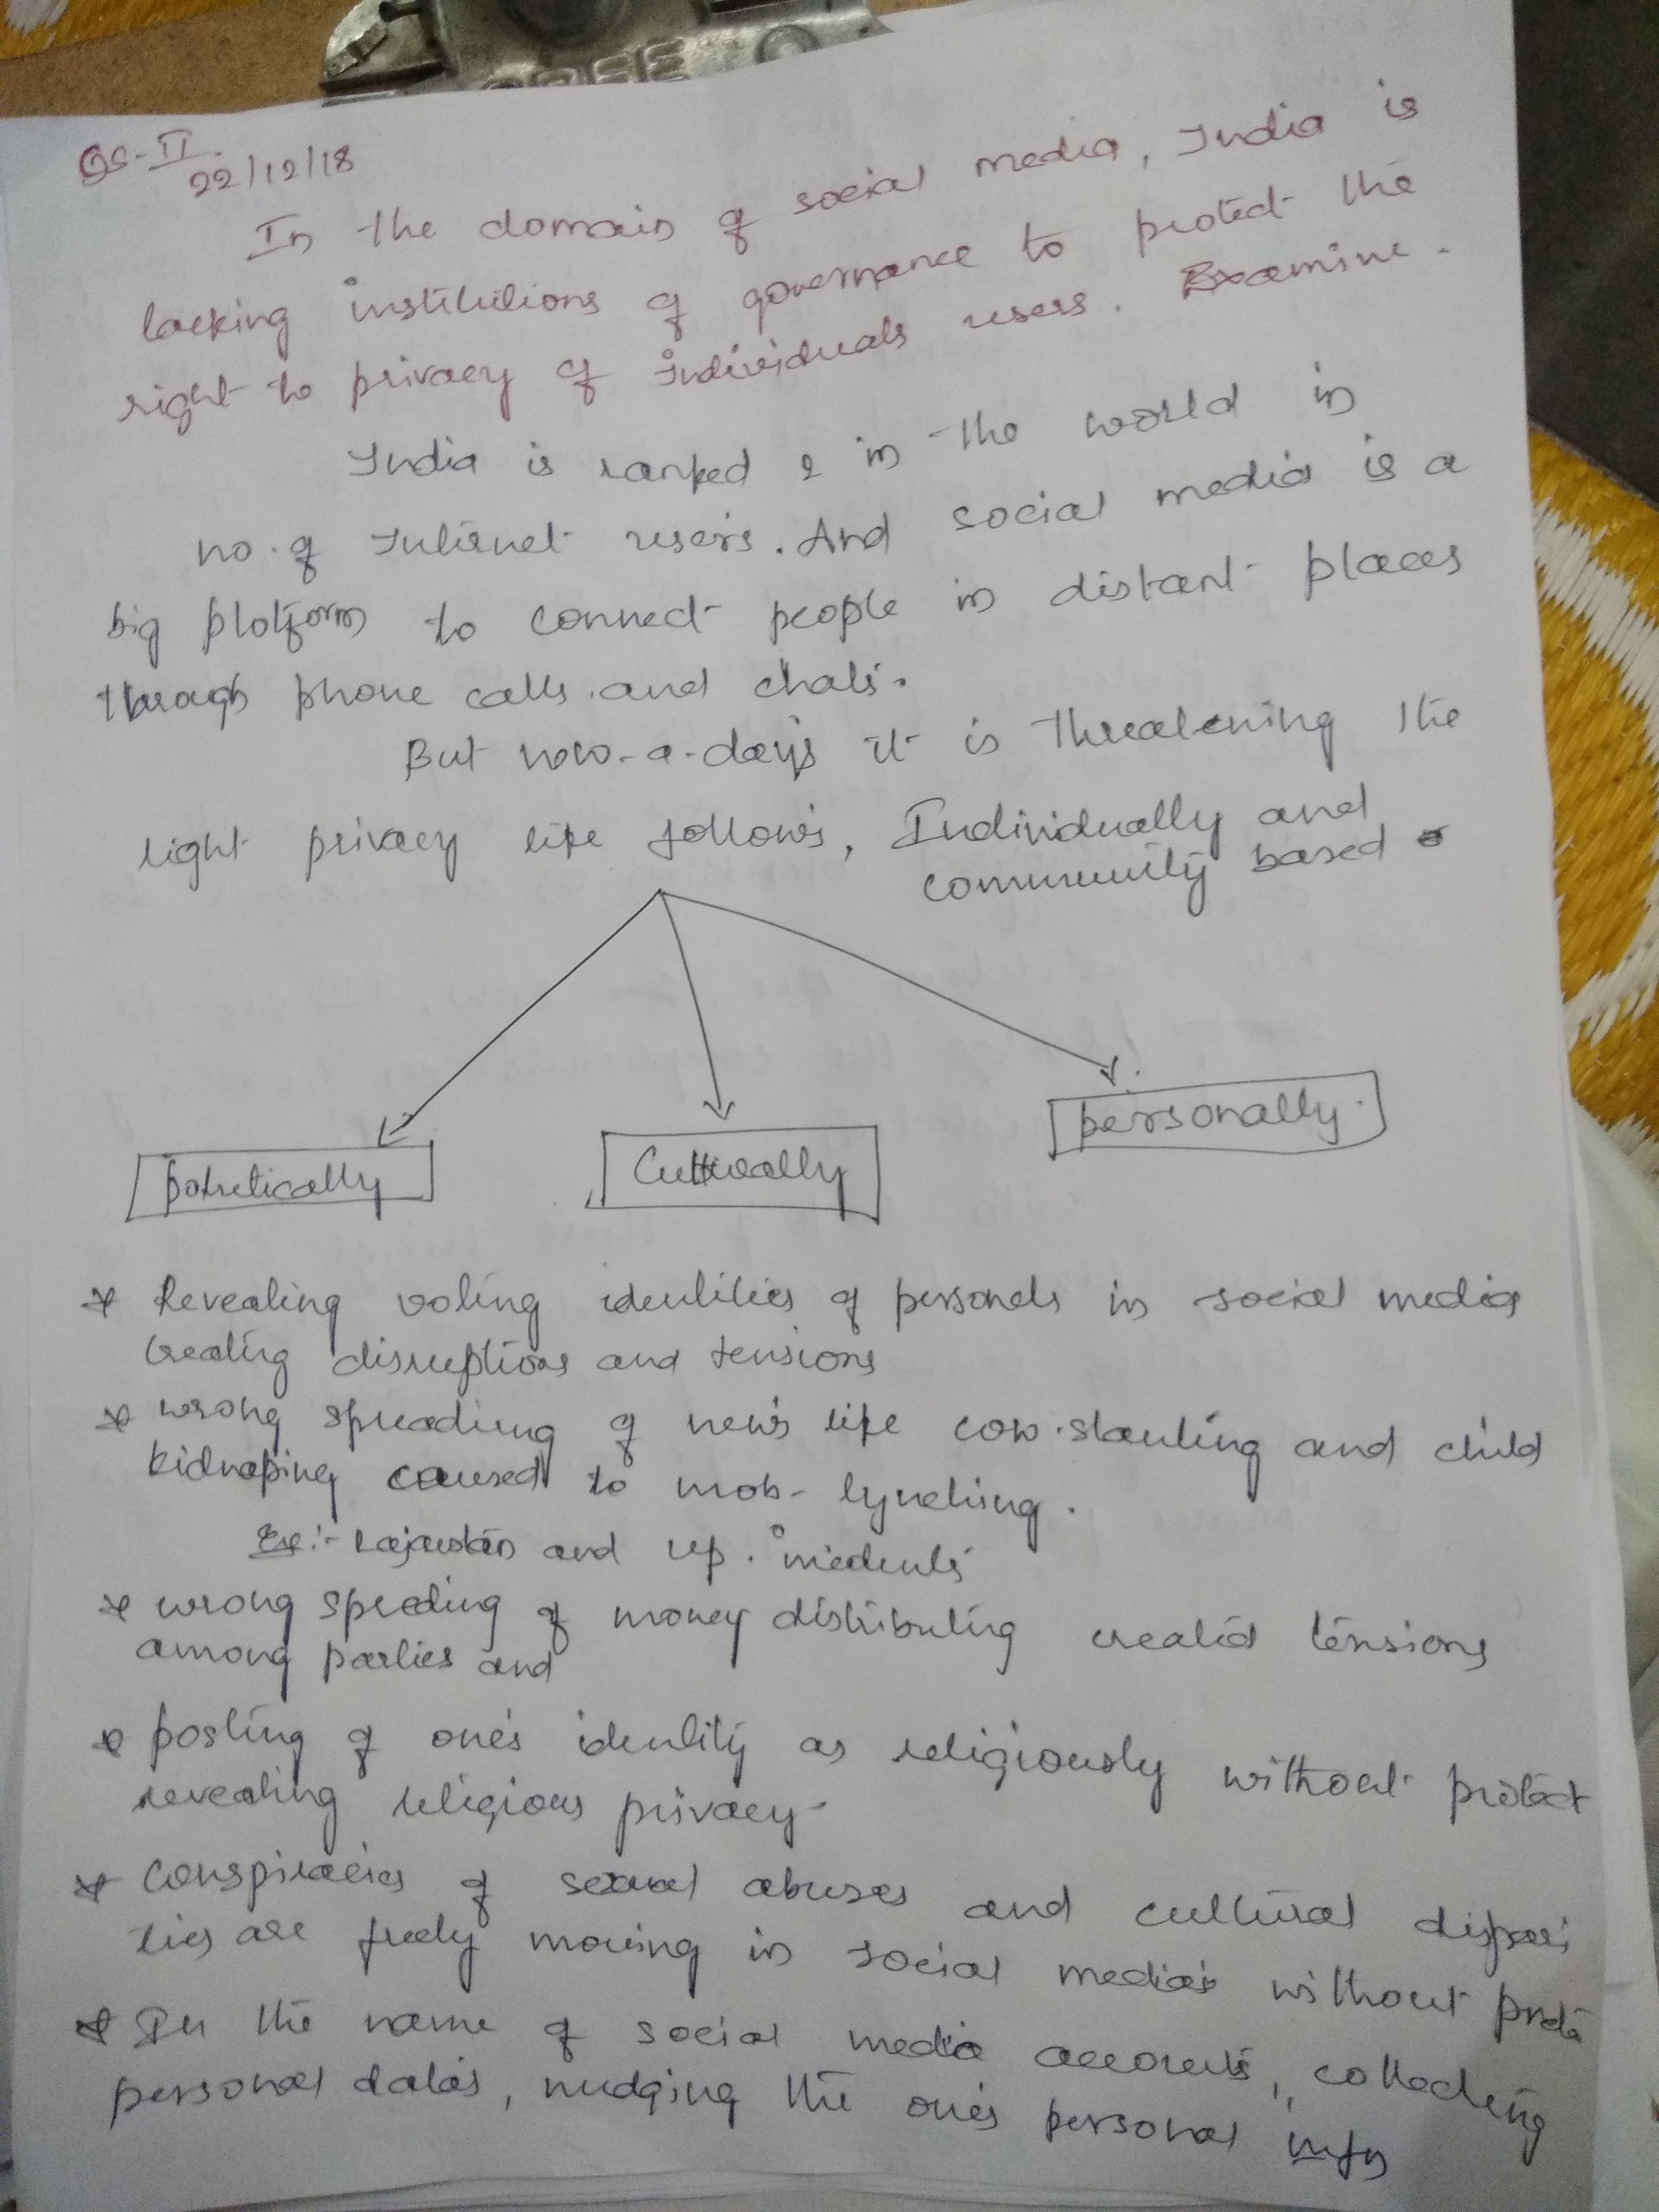 GS-II
22/12/18
In the domain of social media, India is
lacking institutions of governance to protect the
right to privacy of individuals users. Examine.
India is ranked 2 in the world in
no. of Internet users. And social media is a
big platform to connect people in distant places
through phone calls and chats.
But now-a-days it is threatening the
right privacy like follows, Individually and
community based
politically
Culturally
personally
* Revealing voting identities of personels in social media
creating disruptions and tensions
* wrong spreading of news like cow-slauting and child
kidnaping caused to mob-lynching.
Ex:- Rajasthan and up. incidents
* wrong spreding of money distributing created tensions
among parties and
* posting of one's identity as religiously without protect
revealing religious privacy
* Conspiracies of sexual abuses and cultural dispari
ties are freely moving in social medias without prote
* In the name of social media accounts, collecting
personal datas, nudging the one's personal infn